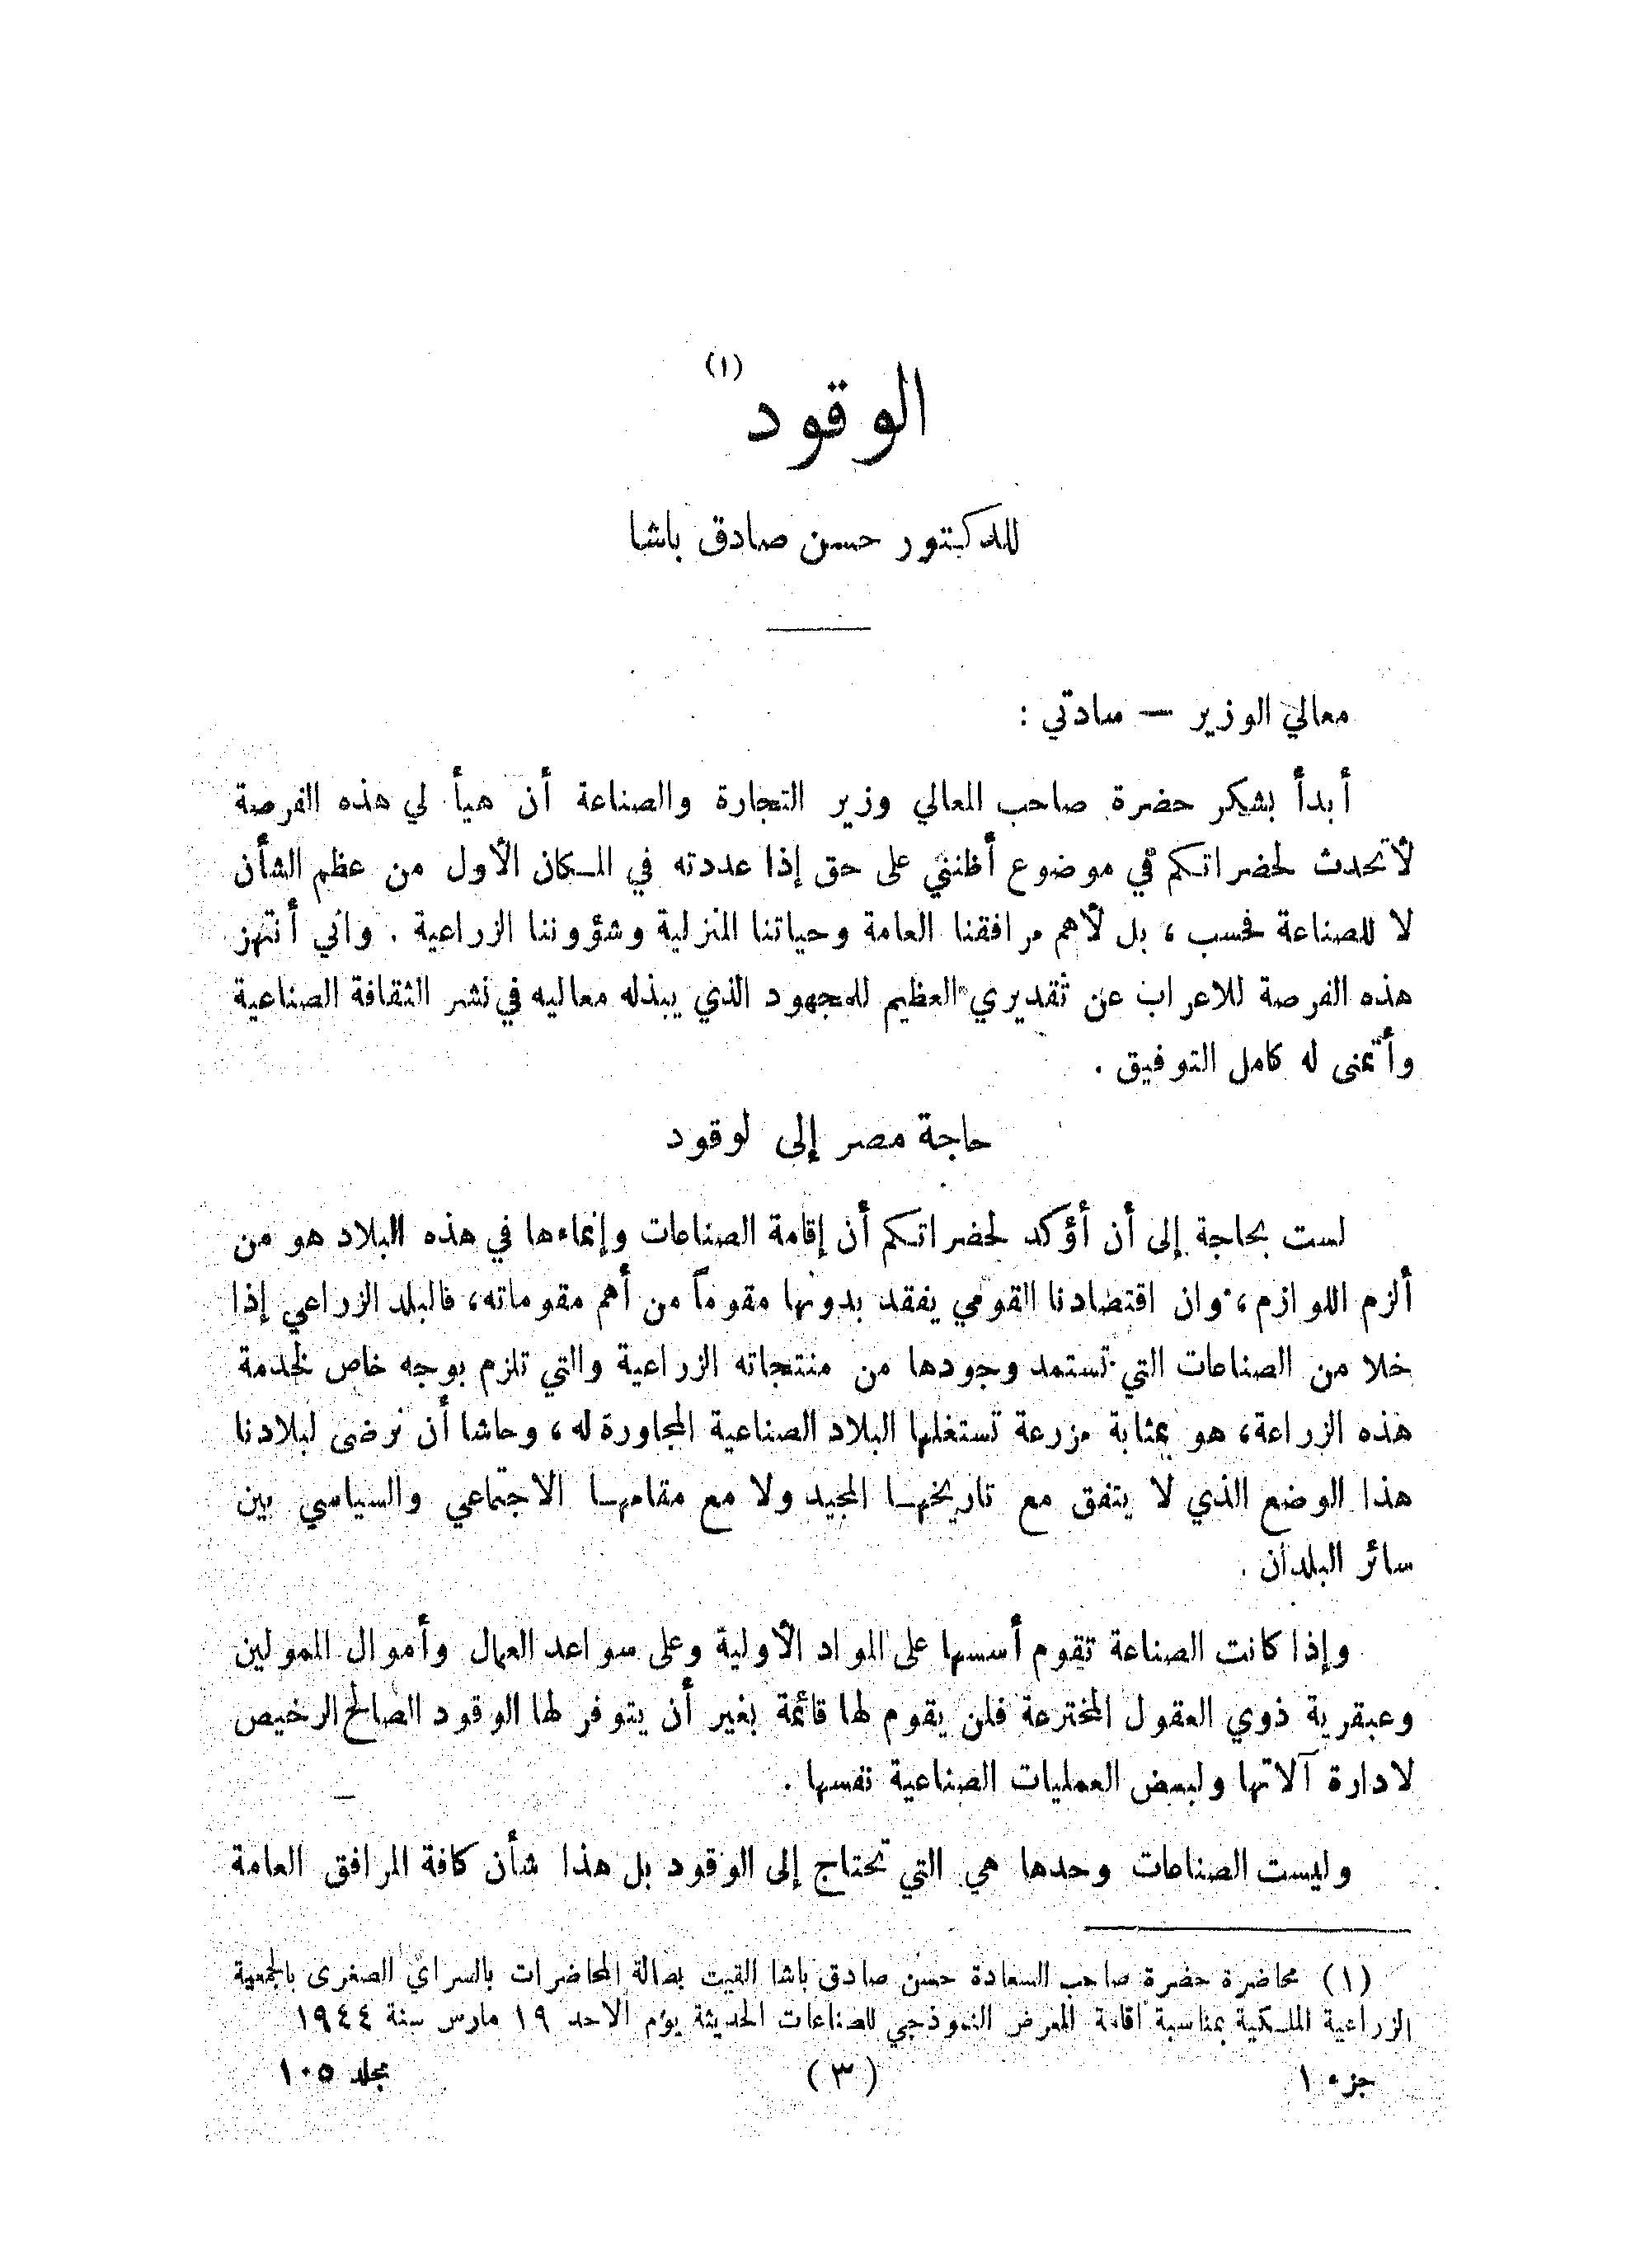 الوقود (١)
للدكتور حسن صادق باشا
معالي الوزير — سادتي :
أبدأ بشكر حضرة صاحب المعالي وزير التجارة والصناعة أن هيأ لي هذه الفرصة
لأتحدث لحضراتكم في موضوع أظنني على حق إذا عددته في المكان الأول من عظم الشأن
لا للصناعة فحسب ، بل لأهم مرافقنا العامة وحياتنا المنزلية وشؤوننا الزراعية . واني أنتهز
هذه الفرصة للاعراب عن تقديري العظيم للمجهود الذي يبذله معاليه في نشر الثقافة الصناعية
وأتمنى له كامل التوفيق .
حاجة مصر إلى لوقود
لست بحاجة إلى أن أؤكد لحضراتكم أن إقامة الصناعات وإنماءها في هذه البلاد هو من
ألزم اللوازم ، وان اقتصادنا القومي يفقد بدونها مقوماً من أهم مقوماته، فالبلد الزراعي إذا
خلا من الصناعات التي تستمد وجودها من منتجاته الزراعية والتي تلزم بوجه خاص لخدمة
هذه الزراعة، هو بمثابة مزرعة تستغلها البلاد الصناعية المجاورة له ، وحاشا أن نرضى لبلادنا
هذا الوضع الذي لا يتفق مع تاريخها المجيد ولا مع مقامها الاجتماعي والسياسي بين
سائر البلدان .
وإذا كانت الصناعة تقوم أسسها على المواد الأولية وعلى سواعد العمال وأموال الممولين
وعبقرية ذوي العقول المخترعة فلن يقوم لها قائمة بغير أن يتوفر لها الوقود الصالح الرخيص
لادارة آلاتها ولبعض العمليات الصناعية نفسها .
وليست الصناعات وحدها هي التي تحتاج إلى الوقود بل هذا شأن كافة المرافق العامة
(١) محاضرة حضرة صاحب السعادة حسن صادق باشا القيت بصالة المحاضرات بالسراي الصغرى بالجمعية
الزراعية الملكية بمناسبة اقامة المعرض النموذجي للصناعات الحديثة يوم الاحد ١٩ مارس سنة ١٩٤٤
جزء ١ (٣) مجلد ١٠٥